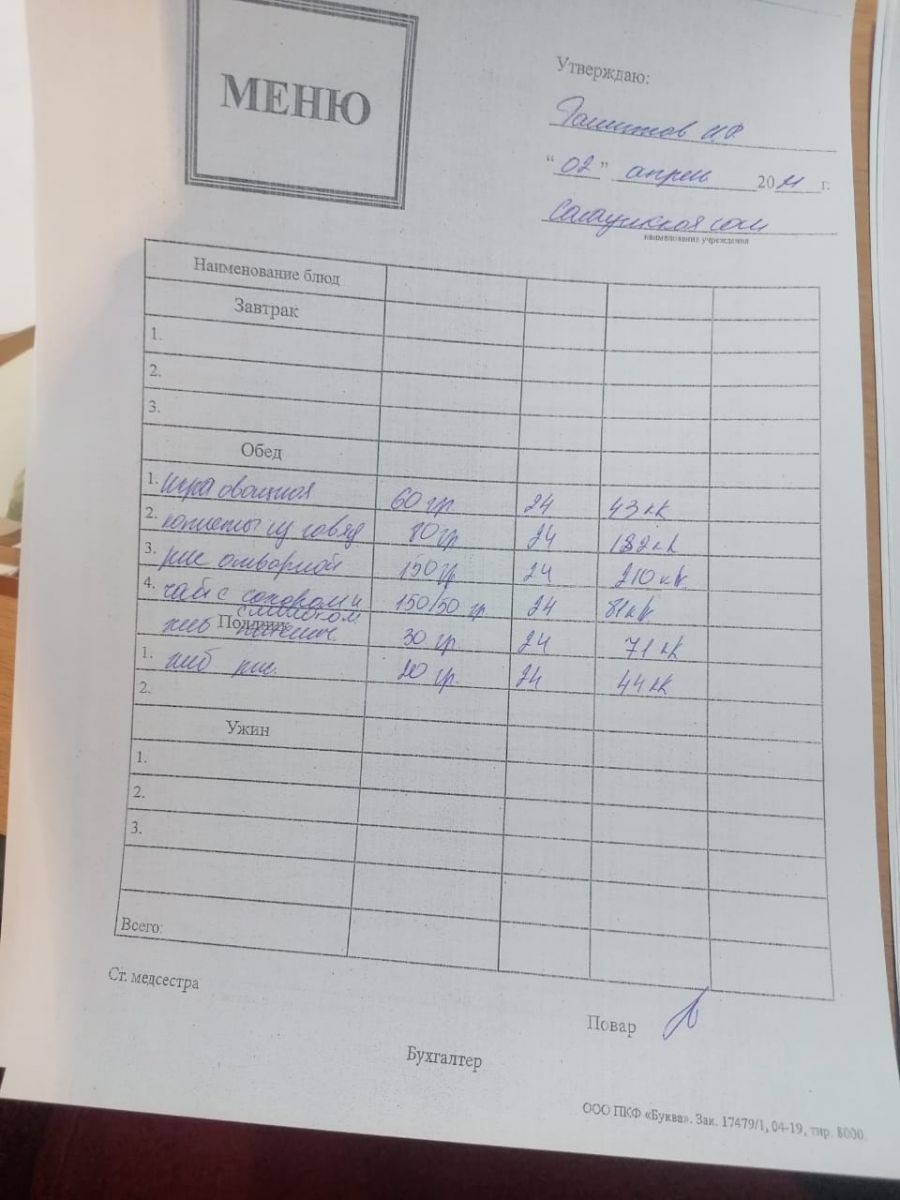 МЕНЮ
Утверждаю:
"02" апрель 2021 г.
наименование учреждения
Наименование блюд
Завтрак
1.
2.
3.
Обед
1. икра овощная 60 гр 24 43 кк
2. котлеты из говяд 80 гр 24 182 кк
3. рис отварной 150 гр 24 210 кк
4. чай с сахаром и 150/50 гр 24 81 кк
Полдник
30 гр 24 71 кк
1. хлеб 20 гр 24 44 кк
2.
Ужин
1.
2.
3.
Всего:
Ст. медсестра
Повар
Бухгалтер
ООО ПКФ «Буква». Зак. 17479/1, 04-19, тир. 8000.